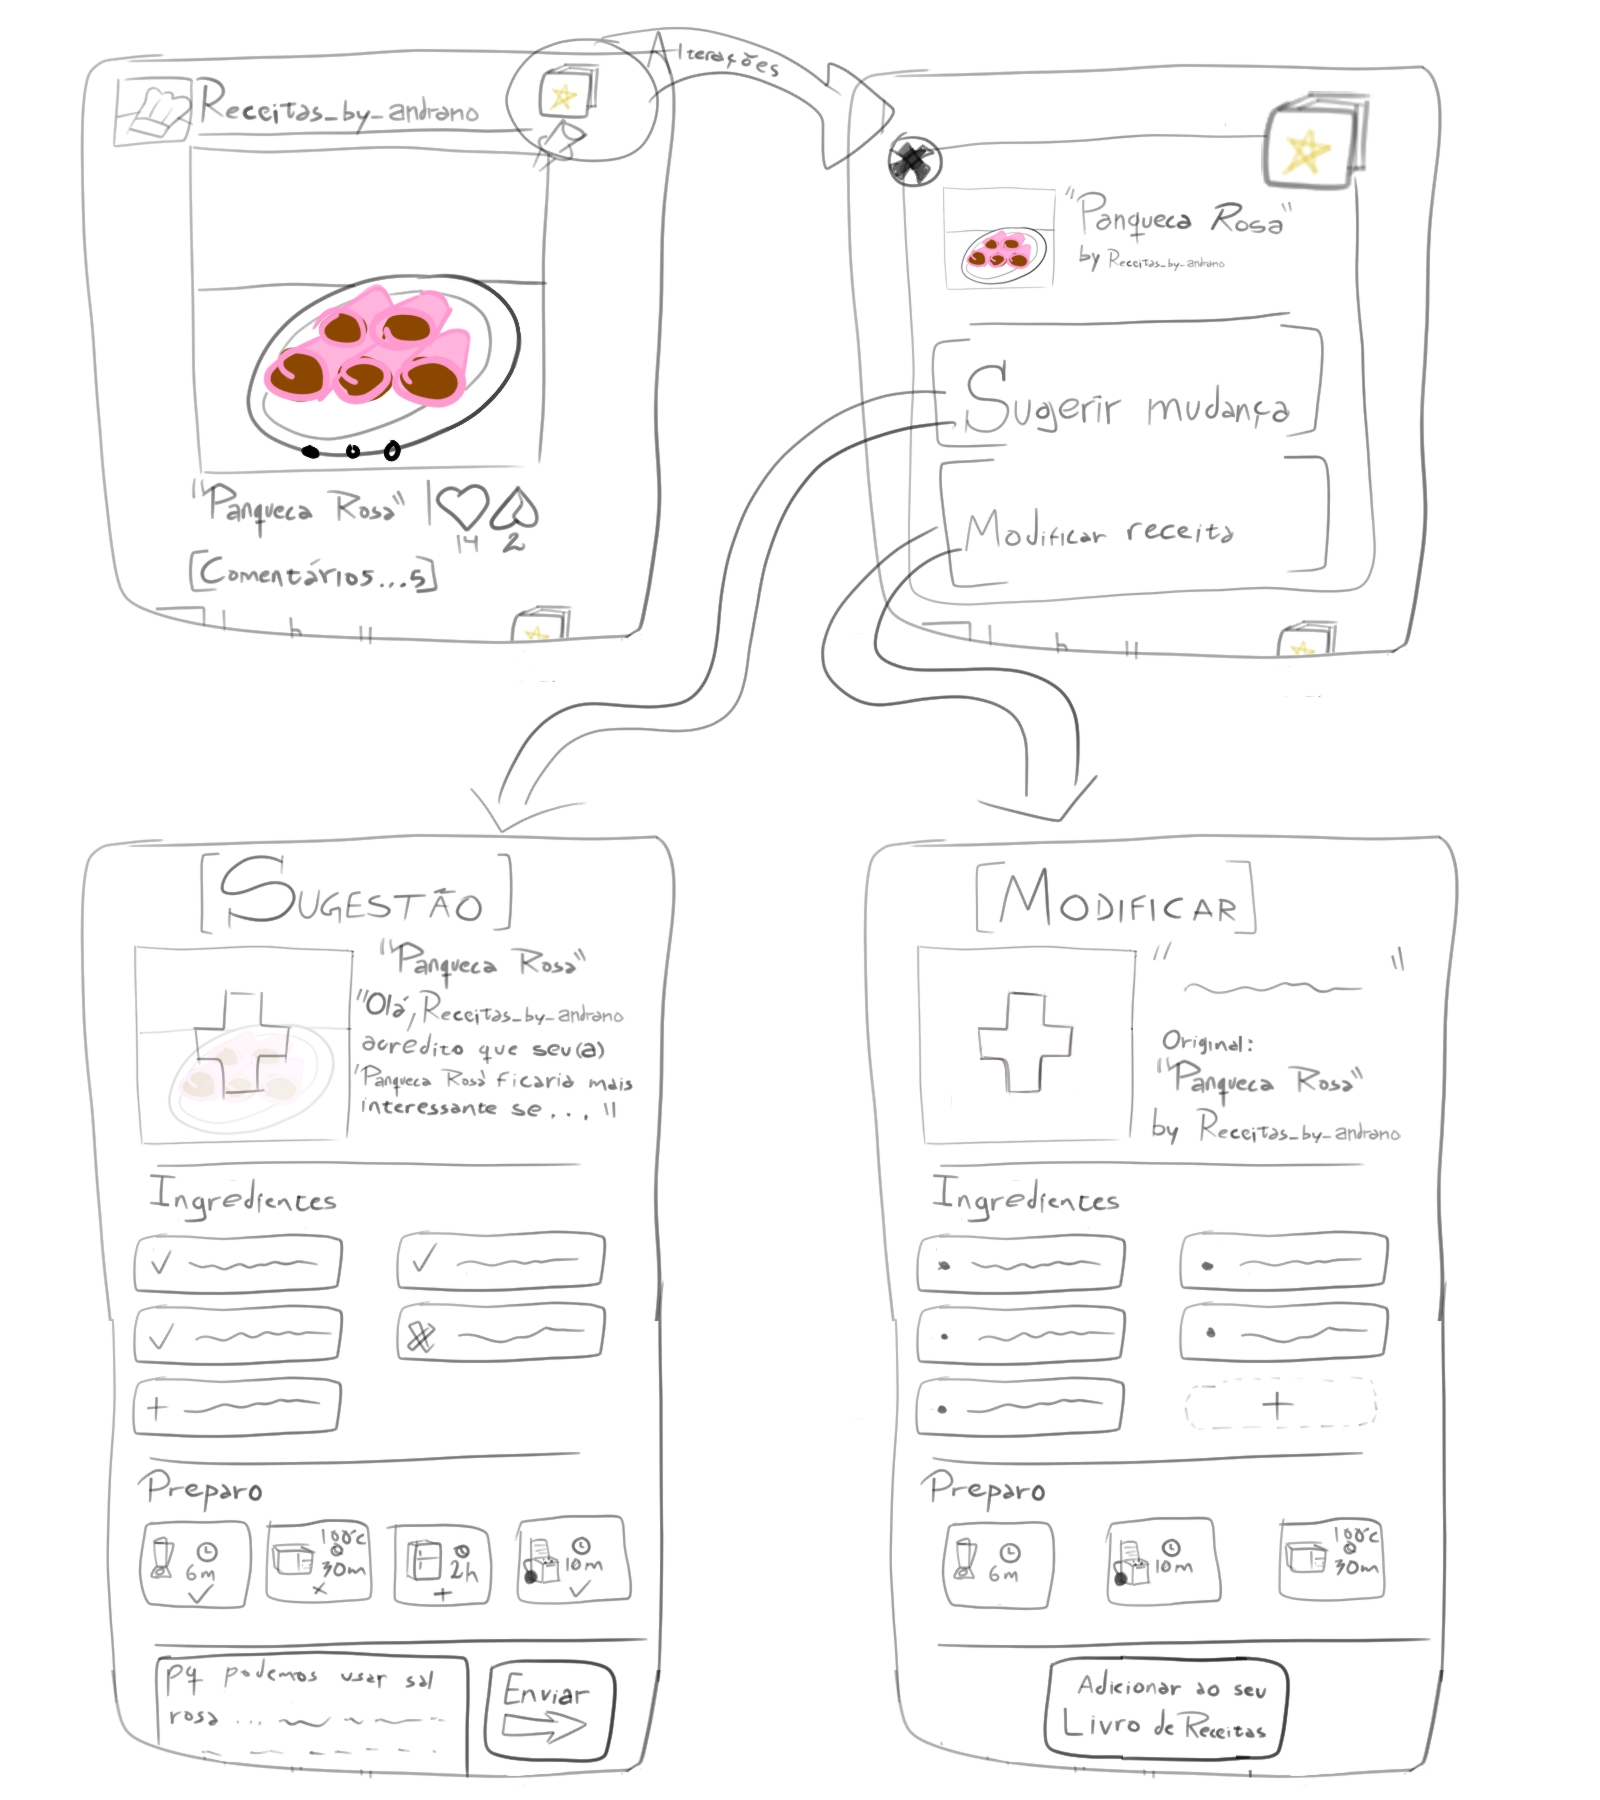 Receitas_by_andrano
Alterações
"Panqueca Rosa"
14
2
[Comentários...5]
"Panqueca Rosa"
by Receitas_by_andrano
Sugerir mudança
Modificar receita
[SUGESTÃO]
"Panqueca Rosa"
"Olá, Receitas_by_andrano
acredito que seu(a)
'Panqueca Rosa' ficaria mais
interessante se... "
Ingredientes
Preparo
6m
100°c
30m
2h
10m
pq podemos usar sal
rosa ...
Enviar
[MODIFICAR]
" "
Original:
"Panqueca Rosa"
by Receitas_by_andrano
Ingredientes
+
Preparo
6m
10m
100°c
30m
Adicionar ao seu
Livro de Receitas